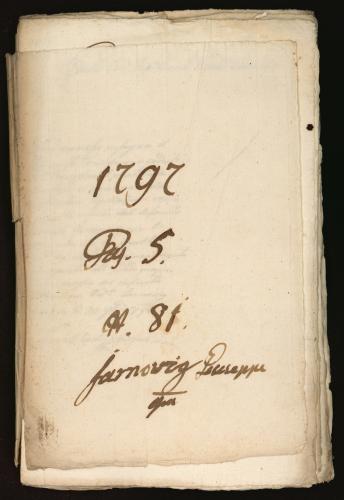 1797
Fas. 5.
N. 81.
Jarnovig Giuseppe